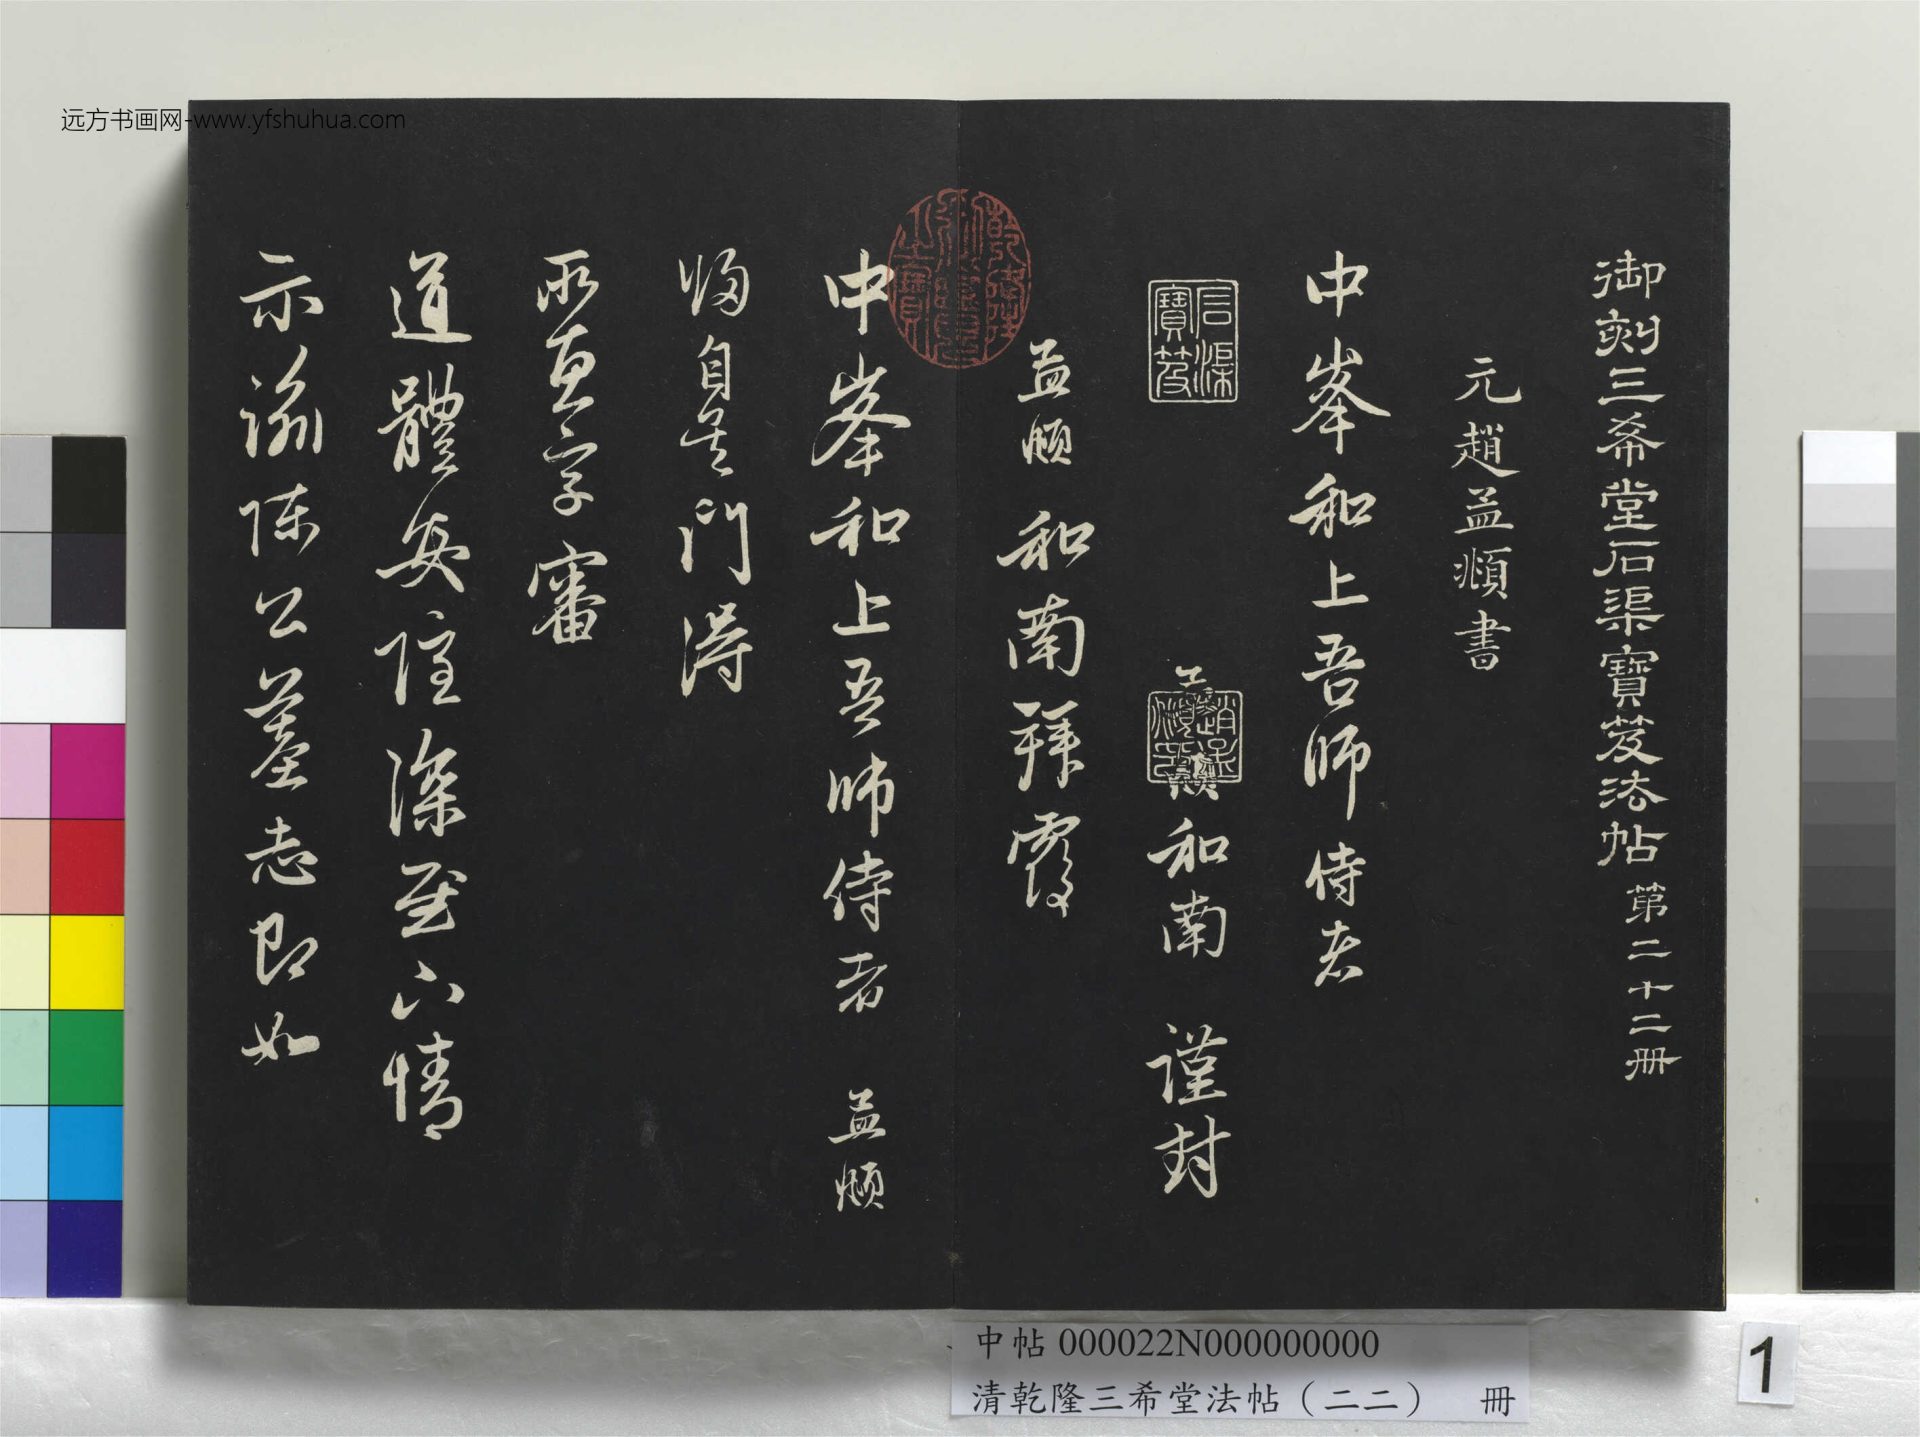 远方书画网-www.yfshuhua.com
御刻三希堂石渠寶笈法帖 第二十二冊
元趙孟頫書
中峯和上吾師侍者
石渠寶笈
和南 謹封
孟頫 和南拜覆
乾隆御覽之寶
中峯和上吾師侍者 孟頫
歸自吳門得
所惠字審
道體安隱深慰下情
示諭陳公墓志即如
中帖 000022N000000000
清乾隆三希堂法帖（二二） 冊
1